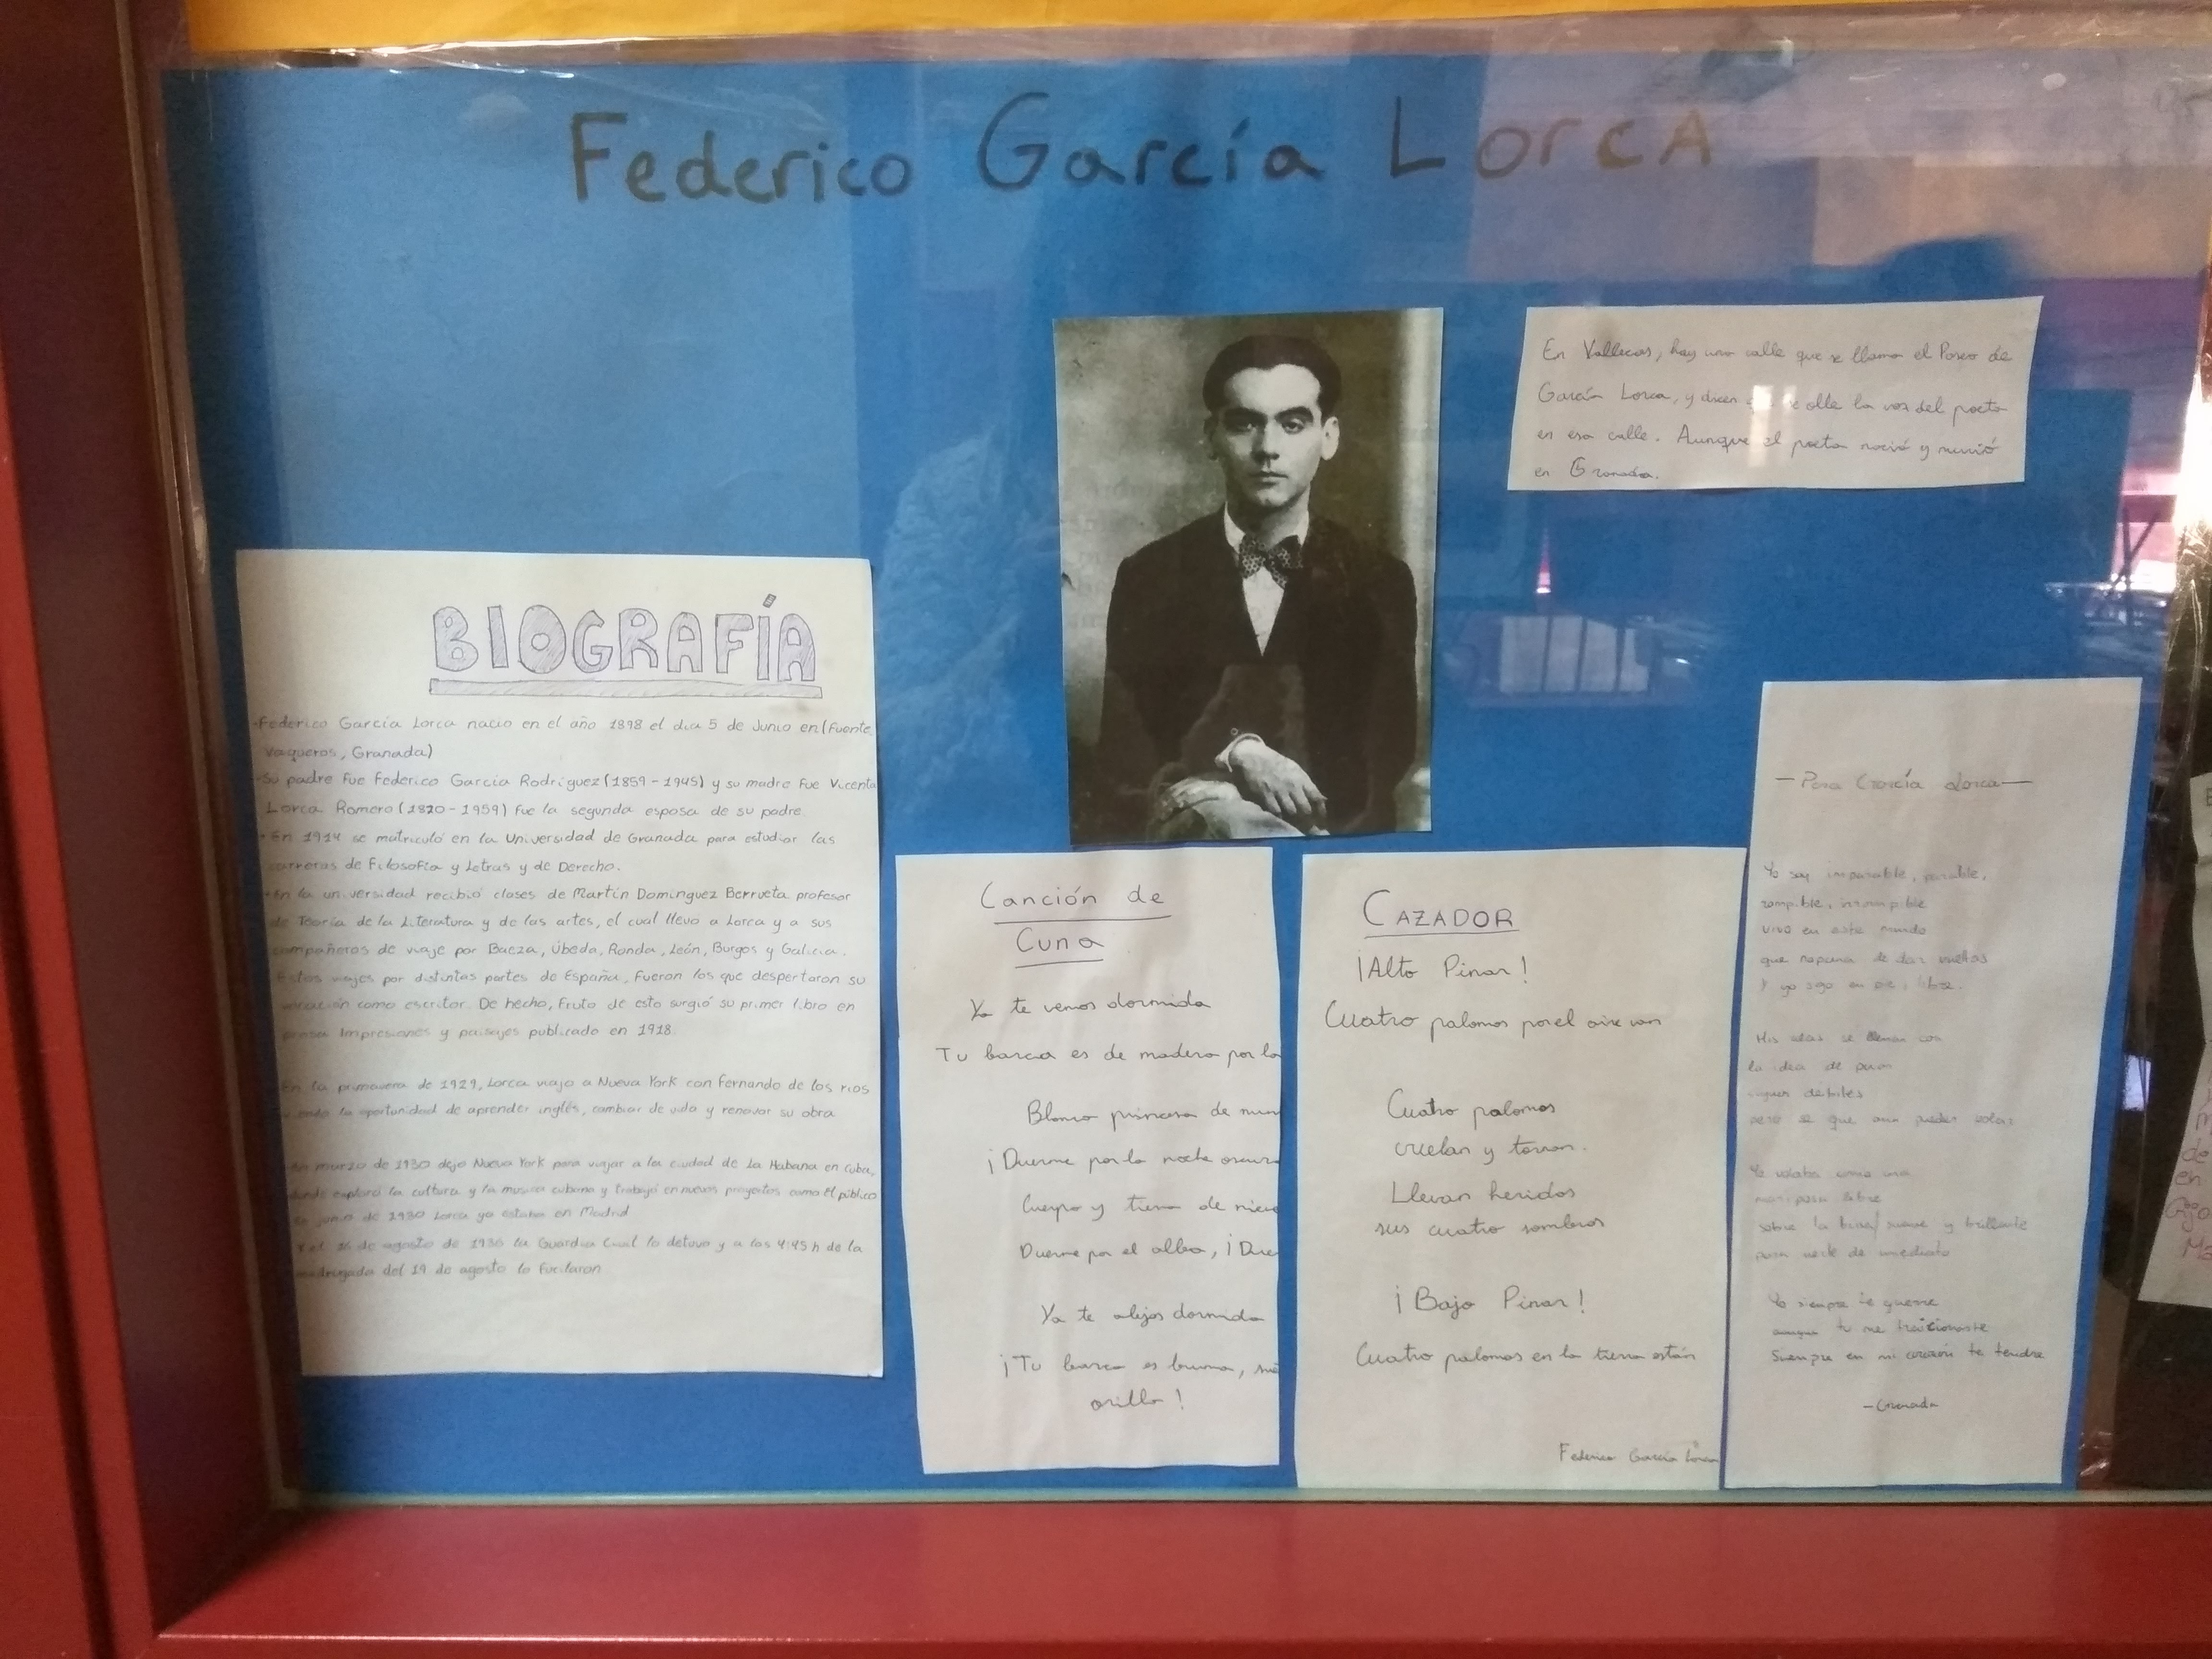 Federico García Lorca
En Vallecas, hay una calle que se llama el Paseo de
García Lorca, y dicen se olle la voz del poeta
en esa calle. Aunque el poeta nació y murió
en Granada.
BIOGRAFÍA
-Federico García Lorca nacio en el año 1898 el dia 5 de Junio en (Fuente
Vaqueros, Granada)
-Su padre fue Federico García Rodríguez (1859-1945) y su madre fue Vicenta
Lorca Romero (1870-1959) fue la segunda esposa de su padre.
-En 1914 se matriculó en la Universidad de Granada para estudiar las
carreras de Filosofía y Letras y de Derecho.
-En la universidad recibió clases de Martín Domínguez Berrueta profesor
de Teoría de la Literatura y de las artes, el cual llevo a Lorca y a sus
compañeros de viaje por Baeza, Úbeda, Ronda, León, Burgos y Galicia.
Estos viajes por distintas partes de España, fueron los que despertaron su
vocación como escritor. De hecho, Fruto de esto surgió su primer libro en
prosa Impresiones y paisajes publicado en 1918.
En la primavera de 1929, Lorca viajo a Nueva York con Fernando de los rios
la oportunidad de aprender inglés, cambiar de vida y renovar su obra
En marzo de 1930 dejo Nueva York para viajar a la ciudad de La Habana en Cuba,
donde exploró la cultura y la musica cubana y trabajó en nuevos proyectos como El público
En junio de 1930 Lorca ya estaba en Madrid
Y el 16 de agosto de 1936 la Guardia Civil lo detuvo y a las 4:45 h de la
madrugada del 19 de agosto lo fusilaron
Canción de
Cuna
Ya te vemos dormida
Tu barca es de madera por la
Blanca princesa de nun
¡Duerme por la noche oscura
Cuerpo y tierra de nieve
Duerme por el alba, ¡Due
Ya te alejas dormida
¡Tu barca es bruma, sue
orilla!
CAZADOR
¡Alto Pinar!
Cuatro palomas por el aire van
Cuatro palomas
vuelan y tornan.
Llevan heridas
sus cuatro sombras
¡Bajo Pinar!
Cuatro palomas en la tierra están
Federico García Lorca
— Para García Lorca —
Yo soy imparable, parable,
rompible, irrompible
vivo en este mundo
que no para de dar vueltas
Y yo sigo en pie, libre.
Mis alas se llenan con
la idea de
siguen débiles
pero se que aun pueden volar
Yo volaba como una
mariposa libre
sobre la suave y brillante
para verte de inmediato
Yo siempre te querre
aunque tu me traicionaste
Siempre en mi corazón te tendre
-Granada